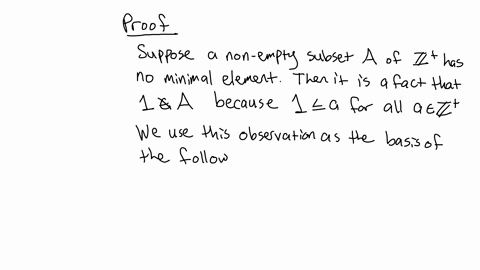 Proof
Suppose a non-empty subset A of ℤ⁺ has
no minimal element. Then it is a fact that
1 ∉ A because 1 ≤ a for all a ∈ ℤ⁺
We use this observation as the basis of
the follow